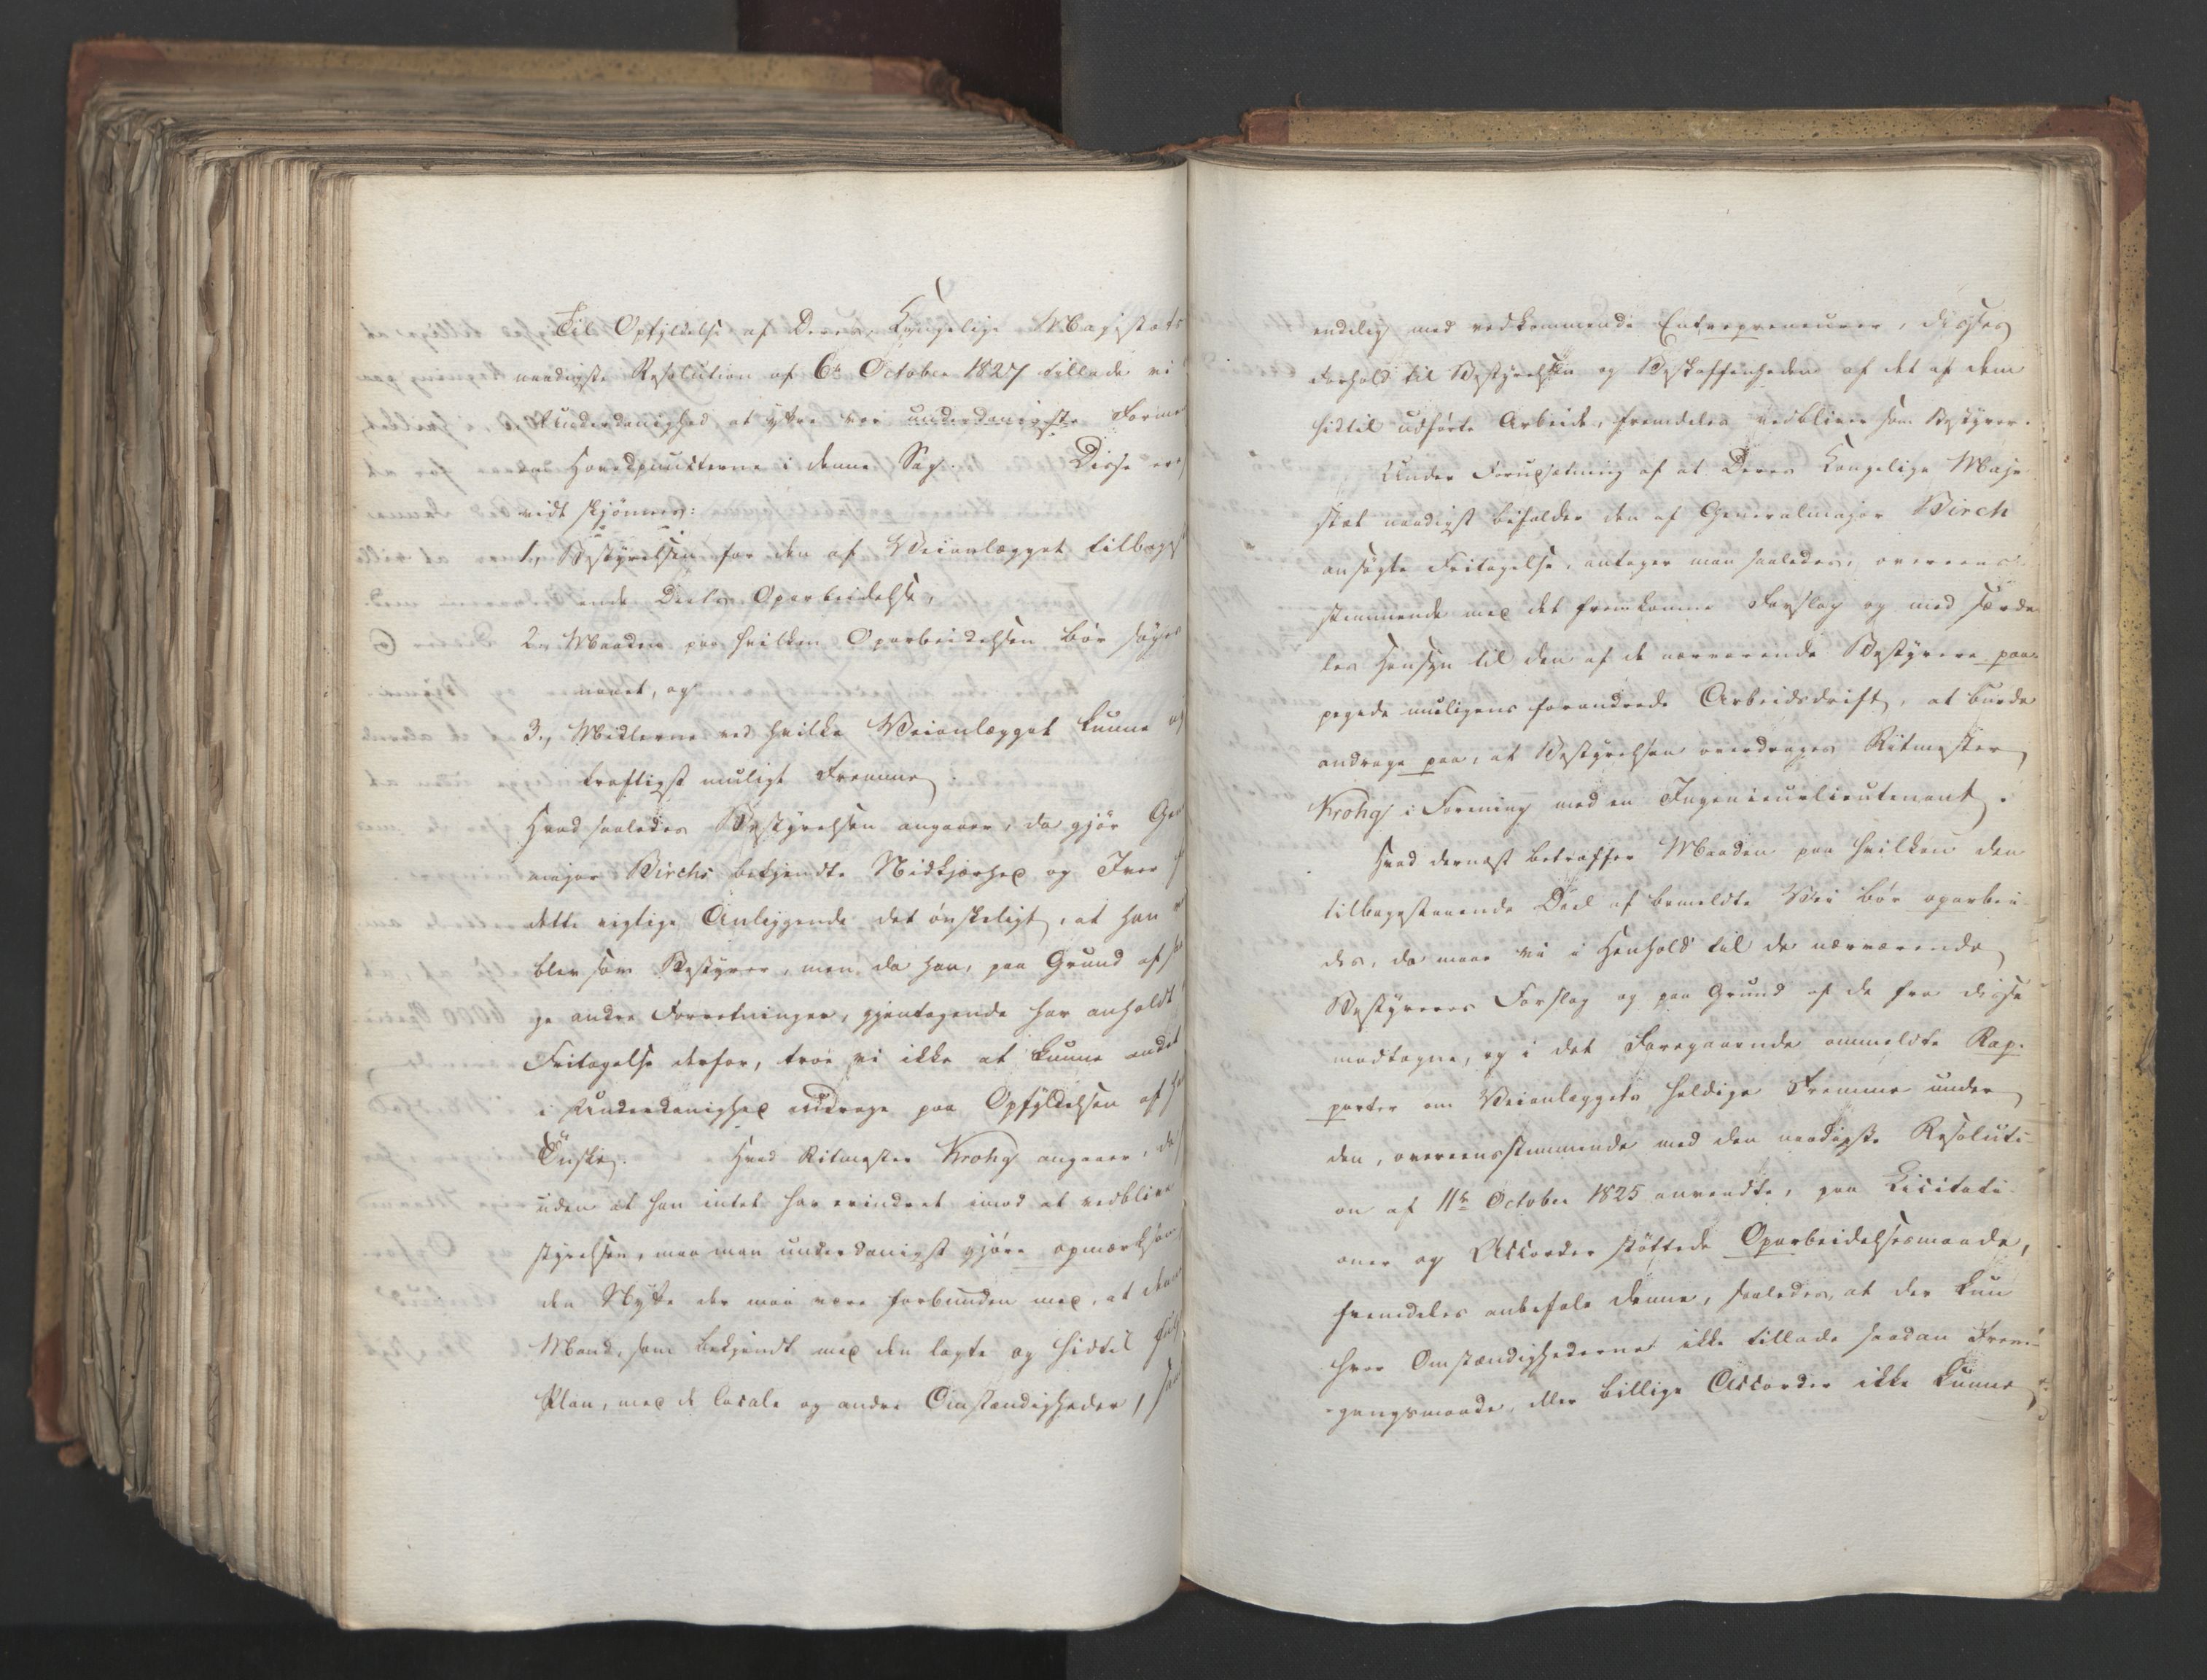 Til Opfyldelse af Deres Kongelige Majestæts
naadigste Resolution af 6te October 1827 tillade vi
Underdanighed, at yttre vor underdanigste Forme
om Hovedpuncterne i denne Sag. Disse ere,
vidt skjønnes:
1., Bestyrelsen for den af Veianlægget tilbagest
ende Deels Oparbeidelse,
2., Maaden paa hvilken Oparbeidelsen bør søges
og
3., Midlerne ved hvilke Veianlægget kunne
kraftigst muligt fremmes.
Hvad saaledes Bestyrelsen angaaer, da gjør Gen
major Birchs bekjendte Nidkjærhed og Iver
dette vigtige Anliggende det ønskeligt, at han
blev som Bestyrer, men da han, paa Grund af
ge andre Forretninger, gjentagende har anholdt
Fritagelse derfor, troe vi ikke at kunne andet
i Underdanighed andrage paa Opfyldelsen af
Ønske. Hvad Ritmester Krohg angaaer, da
uden at han intet har erindret imod at vedblive
styrelsen, maa man underdanigst gjøre opmærksom
den Nytte der maa være forbunden med, at denne
Mand, som bekjendt med den lagte og hidtil
Plan, med de locale og andre Omstændigheder,
endelig med vedkommende Entrepreneurer, disses
Forhold til Bestyrelsen og Beskaffenheden af det af dem
hidtil udførte Arbeide, fremdeles vedbliver som Bestyrer.
Under Forudsætning af at Deres Kongelige Maje
stæt naadigst bifalder den af Generalmajor Birch
ansøgte Fritagelse, antager man saaledes, overeens
stemmende med det fremkomne Forslag og med særde
les Hensyn til den af de nærværende Bestyrere paa
pegede muligens forandrede Arbeidsdrift, at burde
andrage paa, at Bestyrelsen overdrages Ritmester
Krohg i Forening med en Ingenieurlieutenant.
Hvad dernæst betræffer Maaden paa hvilken den
tilbagestaaende Deel af bemeldte Vei bør oparbei
des, da maae vi i Henhold til de nærværende
Bestyreres Forslag og paa Grund af de fra disse
modtagne, og i det Foregaaende ommeldte Rap-
porter om Veianlæggets heldige Fremme under
den, overeensstemmende med den naadigste Resoluti-
on af 11te October 1825 anvendte, paa Licitati-
oner og Accorder støttede Oparbeidelsesmaade,
fremdeles anbefale denne, saaledes, at der kun
hvor Omstændighederne ikke tillade saadan Frem-
gangsmaade, eller billige Accorder ikke kunne